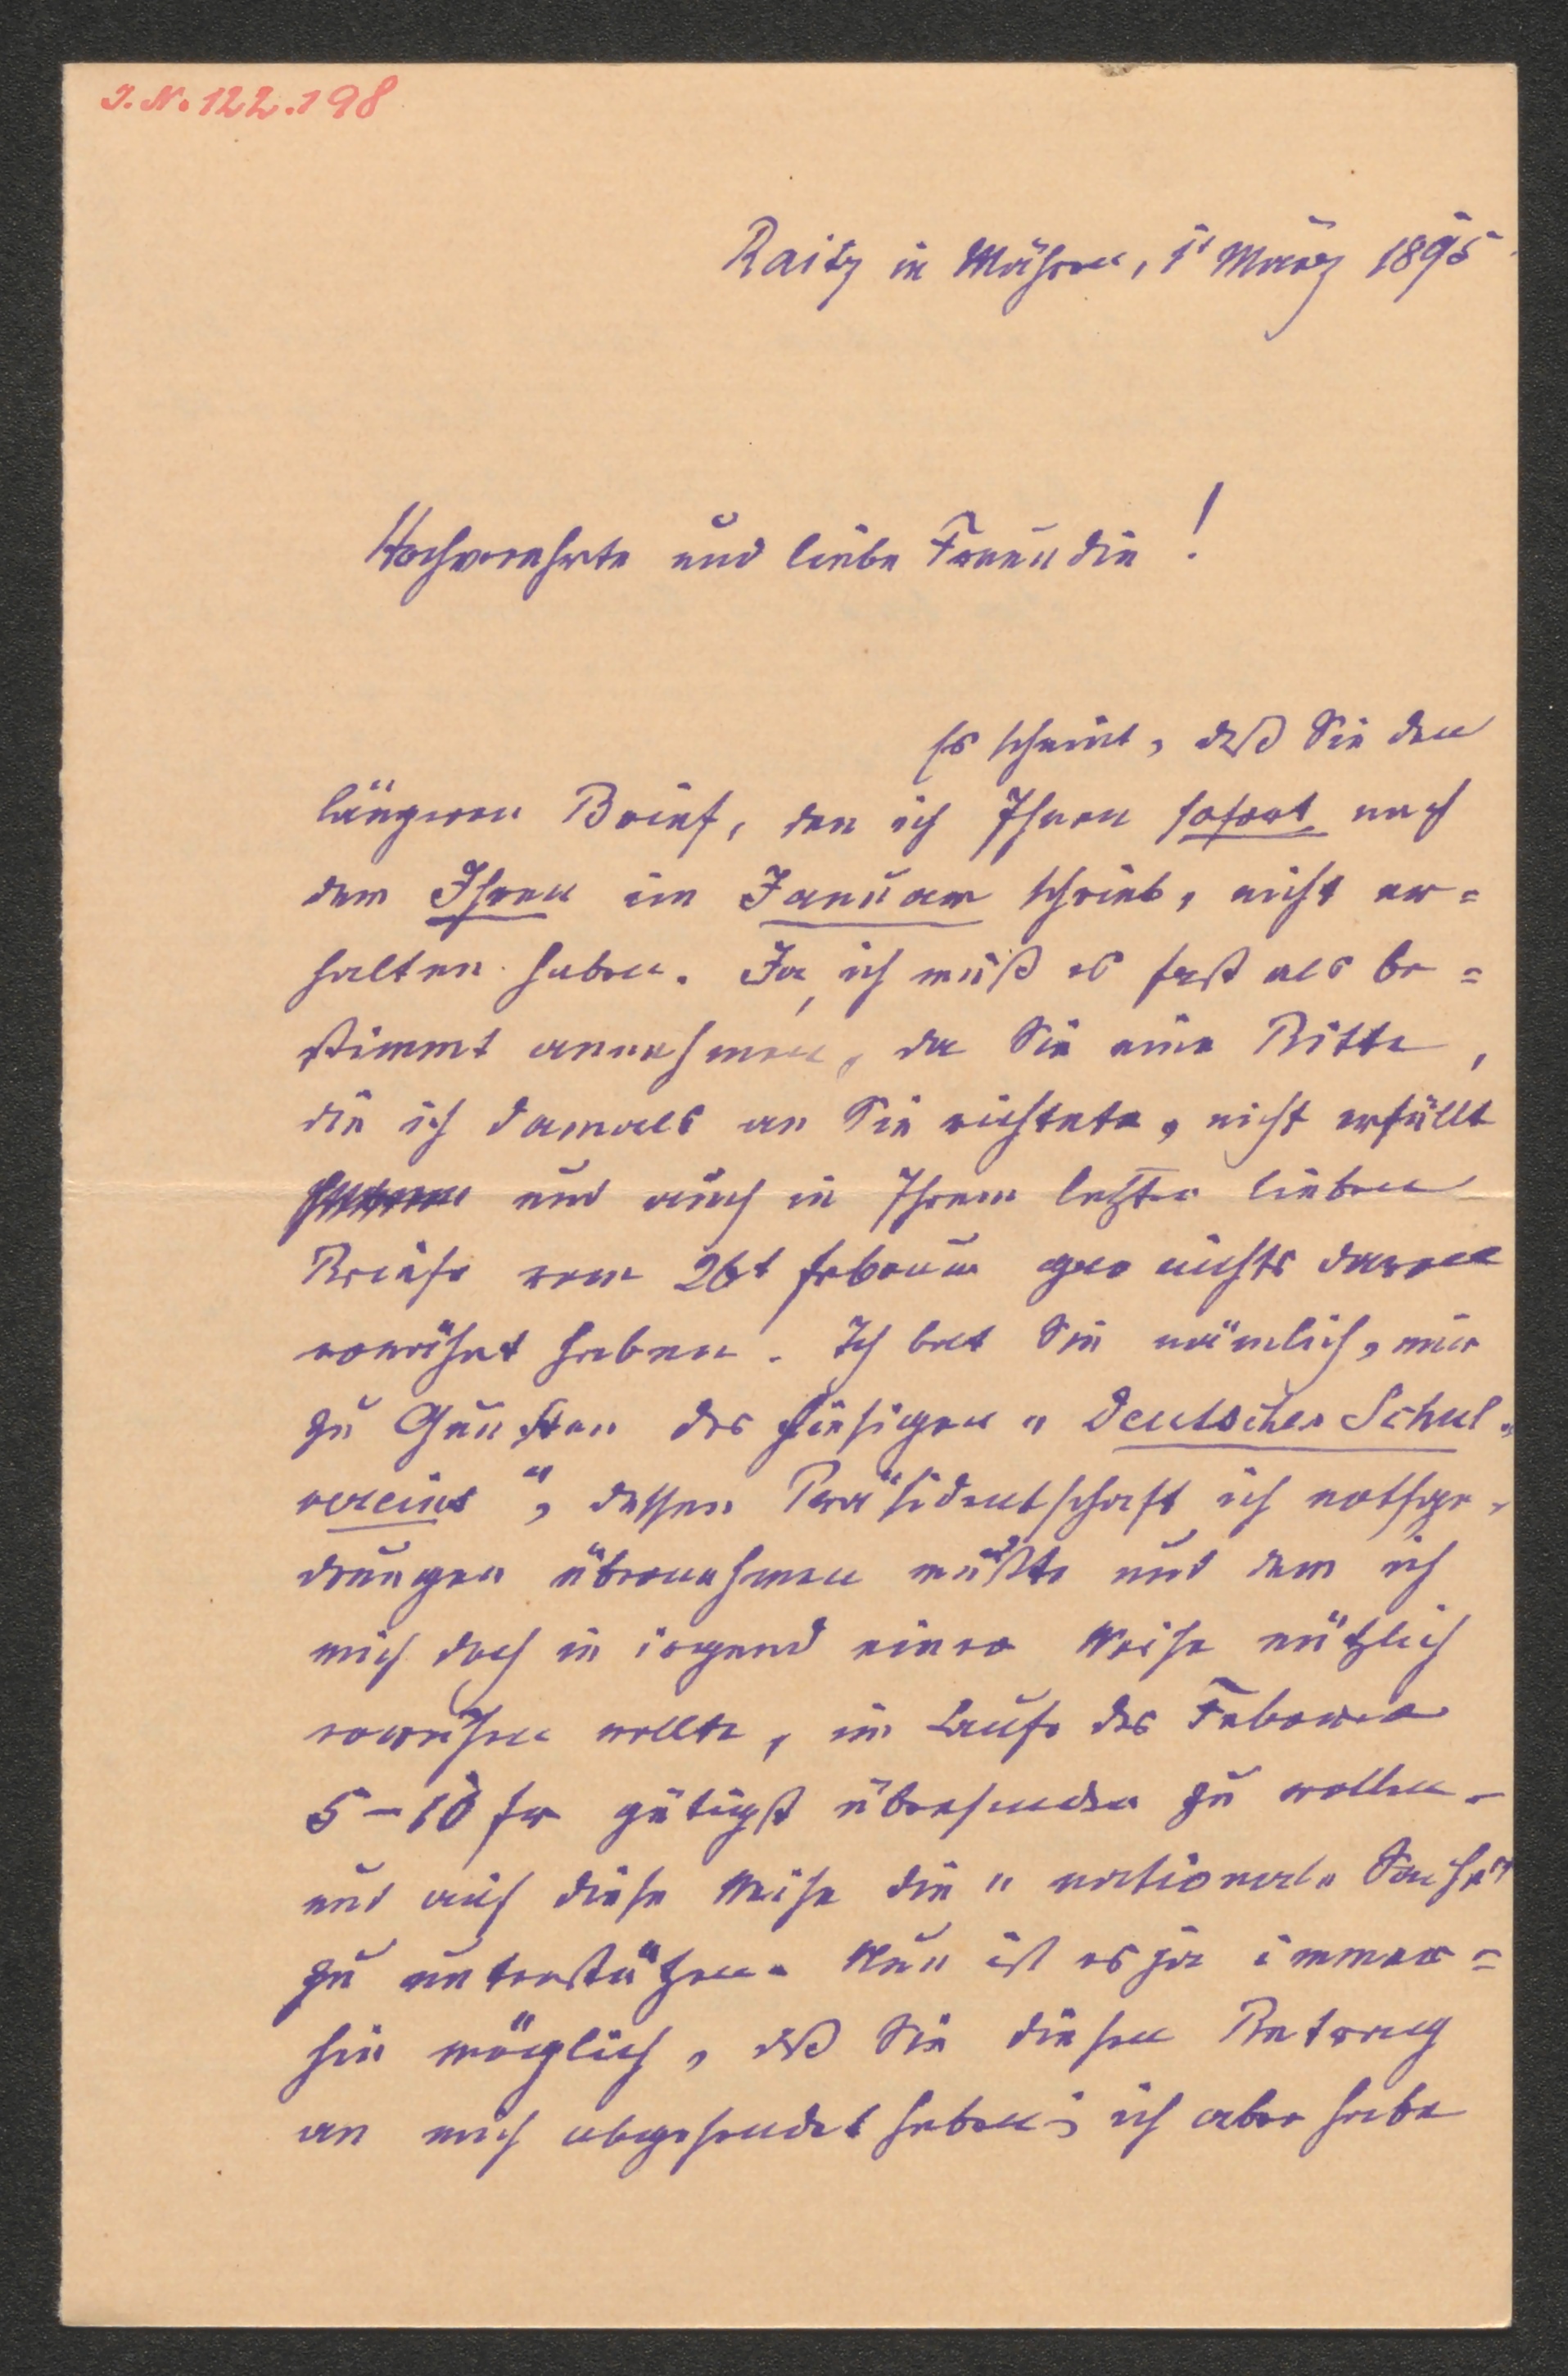 I. N. 122.198
Raitz in Mähren, 1t März 1895
Hochverehrte und liebe Freundin!
Es scheint, daß Sie den
längeren Brief, den ich Ihnen sofort nach
dem Ihren im Januar schrieb, nicht er=
halten haben. Ja, ich muß es fast als be=
stimmt annehmen, da Sie eine Bitte,
die ich damals an Sie richtete, nicht erfüllt
und auch in Ihrem letzten lieben
Briefe vom 26t Februar gar nichts davon
erwähnt haben. Ich bat Sie nämlich, mir
zu Gunsten des hiesigen „Deutschen Schul-
vereins", dessen Präsidentschaft ich nothge-
drungen übernehmen mußte und dem ich
mich doch in irgend einer Weise nützlich
erweisen wollte, im Laufe des Februar
5–10 fr gütigst übersenden zu wollen –
und auf diese Weise die „nationale Sache"
zu unterstützen. Nun ist es ja immer=
hin möglich, daß Sie diesen Betrag
an mich abgesendet haben; ich aber habe